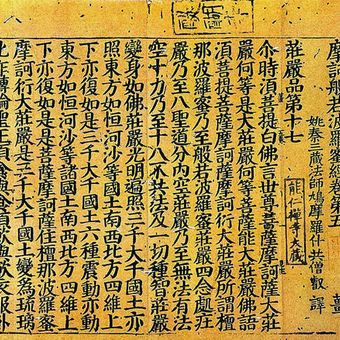 摩訶般若波羅蜜經卷第五
姚秦三藏法師鳩摩羅什共僧叡譯
莊嚴品第十七
能仁禪寺大藏
尒時須菩提白佛言世尊菩薩摩訶薩大莊
嚴何等是大莊嚴何等菩薩能大莊嚴佛語
須菩提菩薩摩訶薩摩訶衍大莊嚴所謂檀
那波羅蜜乃至般若波羅蜜莊嚴四念處莊
嚴乃至八聖道分內空莊嚴乃至無法有法
空十力乃至十八不共法及一切種智莊嚴
變身如佛莊嚴光明遍照三千大千國土亦
照東方如恒河沙等諸國土南西北方四維上
下亦復如是三千大千國土六種震動亦動
東方如恒河沙等國土南西北方四維上
下亦復如是是菩薩摩訶薩住檀那波羅蜜
摩訶衍大莊嚴是三千大千國土變為琉璃